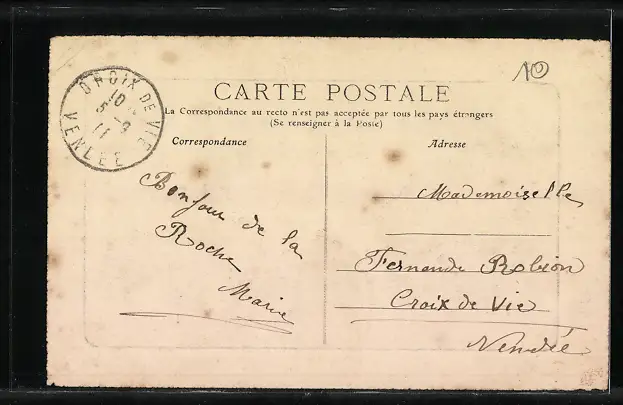 10
CROIX DE VIE
10
5 -9
11
VENDEE
CARTE POSTALE
La Correspondance au recto n'est pas acceptée par tous les pays étrangers
(Se renseigner à la Poste)
Correspondance
Bonjour de la
Roche
Marie
Adresse
Mademoiselle
Fernande Robion
Croix de Vie
Vendée